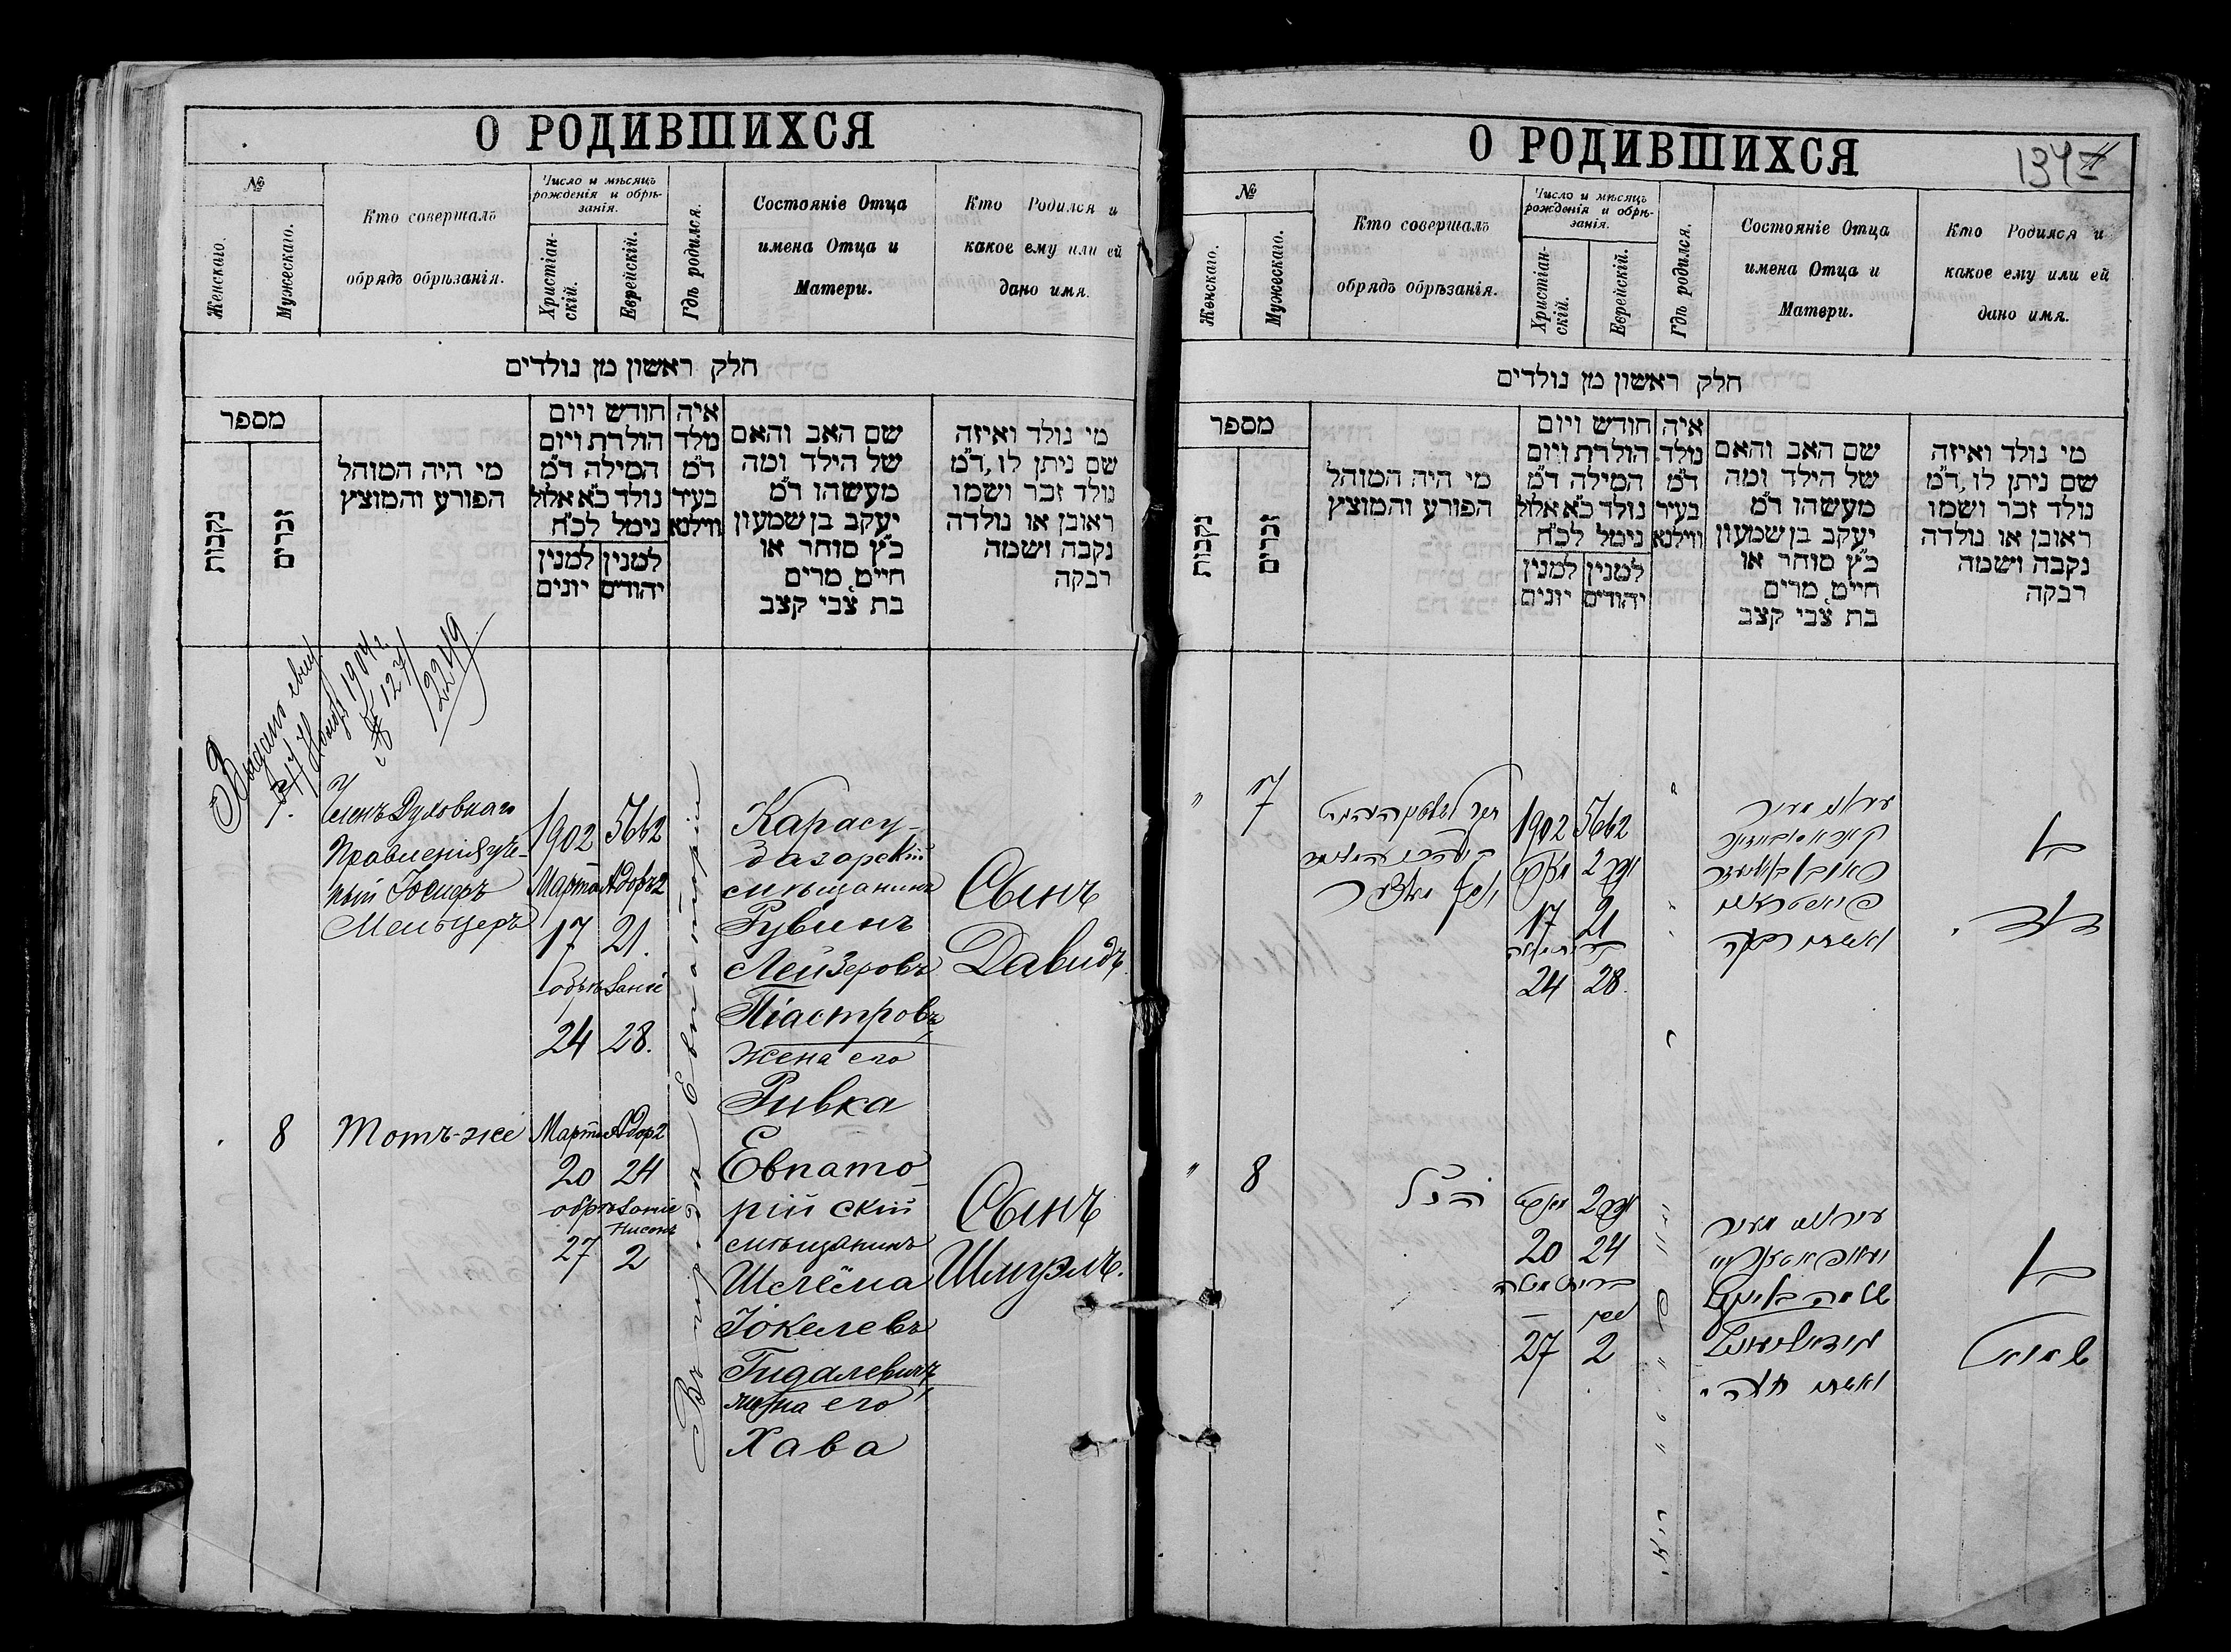 О РОДИВШИХСЯ
№
Женскаго.
Мужескаго.
Кто совершалъ
обрядъ обрѣзанія.
Число и мѣсяцъ
рожденія и обрѣ-
занія.
Христіан-
скій.
Еврейскій.
Гдѣ родился.
Состояніе Отца
имена Отца и
Матери.
Кто Родился и
какое ему или ей
дано имя.
חלק ראשון מן נולדים
מספר
נקבות
זכרים
מי היה המוהל
הפורע והמוצץ
חודש ויום
הולדת ויום
המילה ד"מ
נולד כ"א אלול
נימל לכ"ח
למנין
יהודים
למנין
יונים
איה
נולד
ד"מ
בעיר
ווילנא
שם האב והאם
של הילד ומה
מעשהו ד"מ
יעקב בן שמעון
כ"ץ סוחר או
חייט, מרים
בת צבי קצב
מי נולד ואיזה
שם ניתן לו, ד"מ
נולד זכר ושמו
ראובן או נולדה
נקבה ושמה
רבקה
Выдано свид.
17 Нояб. 1904 г.
№ 127/
2249
7.
Членъ Духовнаго
Правленія уче-
ный Іосифъ
Мельцеръ
1902 5662
Марта Адоръ 2
17 21.
обрѣзаніе
24 28.
Въ гор-дѣ Евпаторіи
Карасу-
базарскій
мѣщанинъ
Рувинъ
Лейзеровъ
Піастровъ,
жена его
Ривка
Сынъ
Давидъ.
8 Тотъ-же
Марта Адор 2
20 24
обрѣзаніе
Нисонъ
27 2
Евпато-
рійскій
мѣщанинъ
Шлёма
Іокелевъ
Гидалевичъ,
жена его
Хава
Сынъ
Шмуэлъ.
О РОДИВШИХСЯ
134
№
Женскаго.
Мужескаго.
Кто совершалъ
обрядъ обрѣзанія.
Число и мѣсяцъ
рожденія и обрѣ-
занія.
Христіан-
скій.
Еврейскій.
Гдѣ родился.
Состояніе Отца
имена Отца и
Матери.
Кто Родился и
какое ему или ей
дано имя.
חלק ראשון מן נולדים
מספר
נקבות
זכרים
מי היה המוהל
הפורע והמוצץ
חודש ויום
הולדת ויום
המילה ד"מ
נולד כ"א אלול
נימל לכ"ח
למנין
יהודים
למנין
יונים
איה
נולד
ד"מ
בעיר
ווילנא
שם האב והאם
של הילד ומה
מעשהו ד"מ
יעקב בן שמעון
כ"ץ סוחר או
חייט, מרים
בת צבי קצב
מי נולד ואיזה
שם ניתן לו, ד"מ
נולד זכר ושמו
ראובן או נולדה
נקבה ושמה
רבקה
" 7
1902 5662
מרט אדר 2
17 21
ברית מילה
24 28.
ואשתו רבקה
בן
דוד
" 8
הנ"ל
מרט אדר 2
20 24
ברית מילה
ניסן
27 2
ואשתו חוה
בן
שמואל